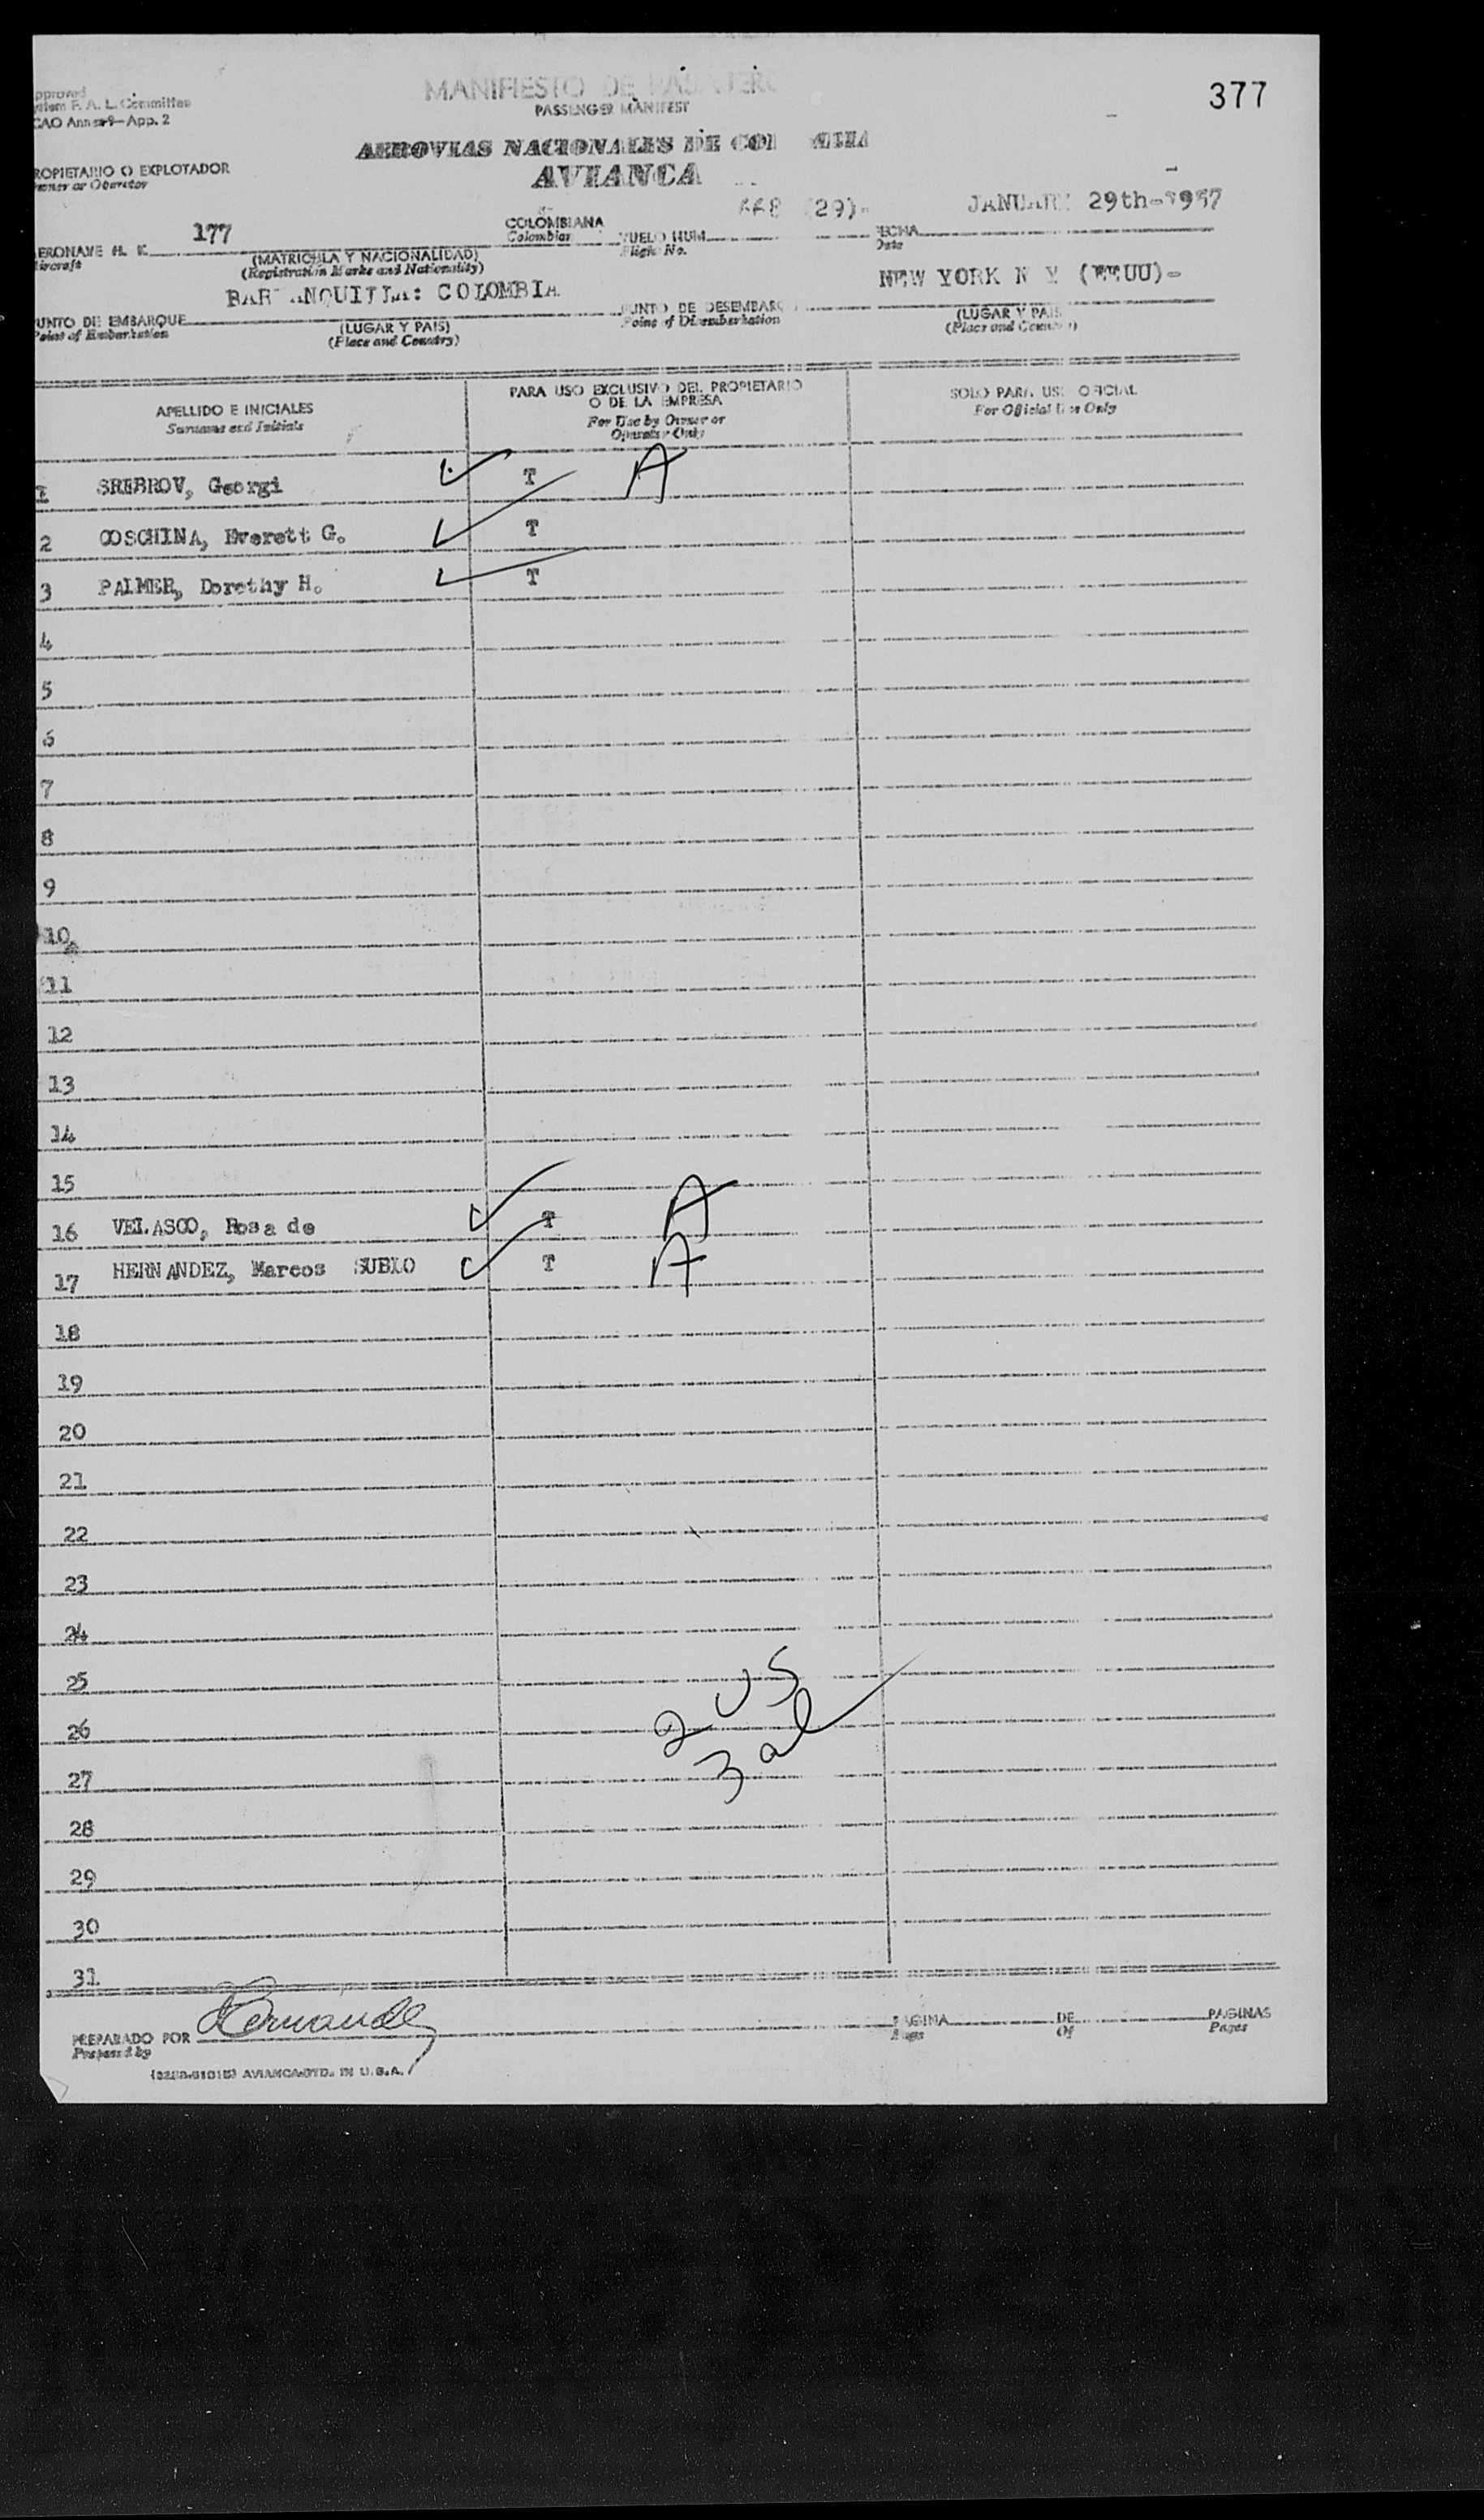 377
MANIFIESTO DE PASAJERO
PASSENGER MANIFEST
F. A. L. Committee
Annex 9—App. 2
AEROVIAS NACIONALES DE
AVIANCA
ROPIETARIO O EXPLOTADOR
or Operator
JANUARY 29th-1957
(29)-
177
COLOMBIANA
Colombian
VUELO NUM.
Flight No.
ECHA
Date
ERONAVE H. K.
ircraft
(MATRICULA Y NACIONALIDAD)
(Registration Marks and Nationality)
BARRANQUILLA: COLOMBIA
NEW YORK N Y (EEUU)-
UNTO DE EMBARQUE
Point of Embarkation
(LUGAR Y PAIS)
(Place and Country)
UNTO DE DESEMBARC
Point of Disembarkation
(LUGAR Y PAIS
(Place and Country)
APELLIDO E INICIALES
Surname and Initials
PARA USO EXCLUSIVO DEL PROPIETARIO
O DE LA EMPRESA
For Use by Owner or
Operator Only
SOLO PARA USO OFICIAL
For Official Use Only
1 SREBROV, Georgi T A
2 COSCHINA, Everett G. T
3 PALMER, Dorothy H. T
4
5
6
7
8
9
10
11
12
13
14
15
16 VELASCO, Rosa de T A
17 HERNANDEZ, Marcos SUBIO T A
18
19
20
21
22
23
24
25
26
27
28
29
30
31
2 US
3 al
PREPARADO POR
Prepared by
PAGINA DE PAGINAS
Page Of Pages
AVIANCA-PTD. IN U.S.A.